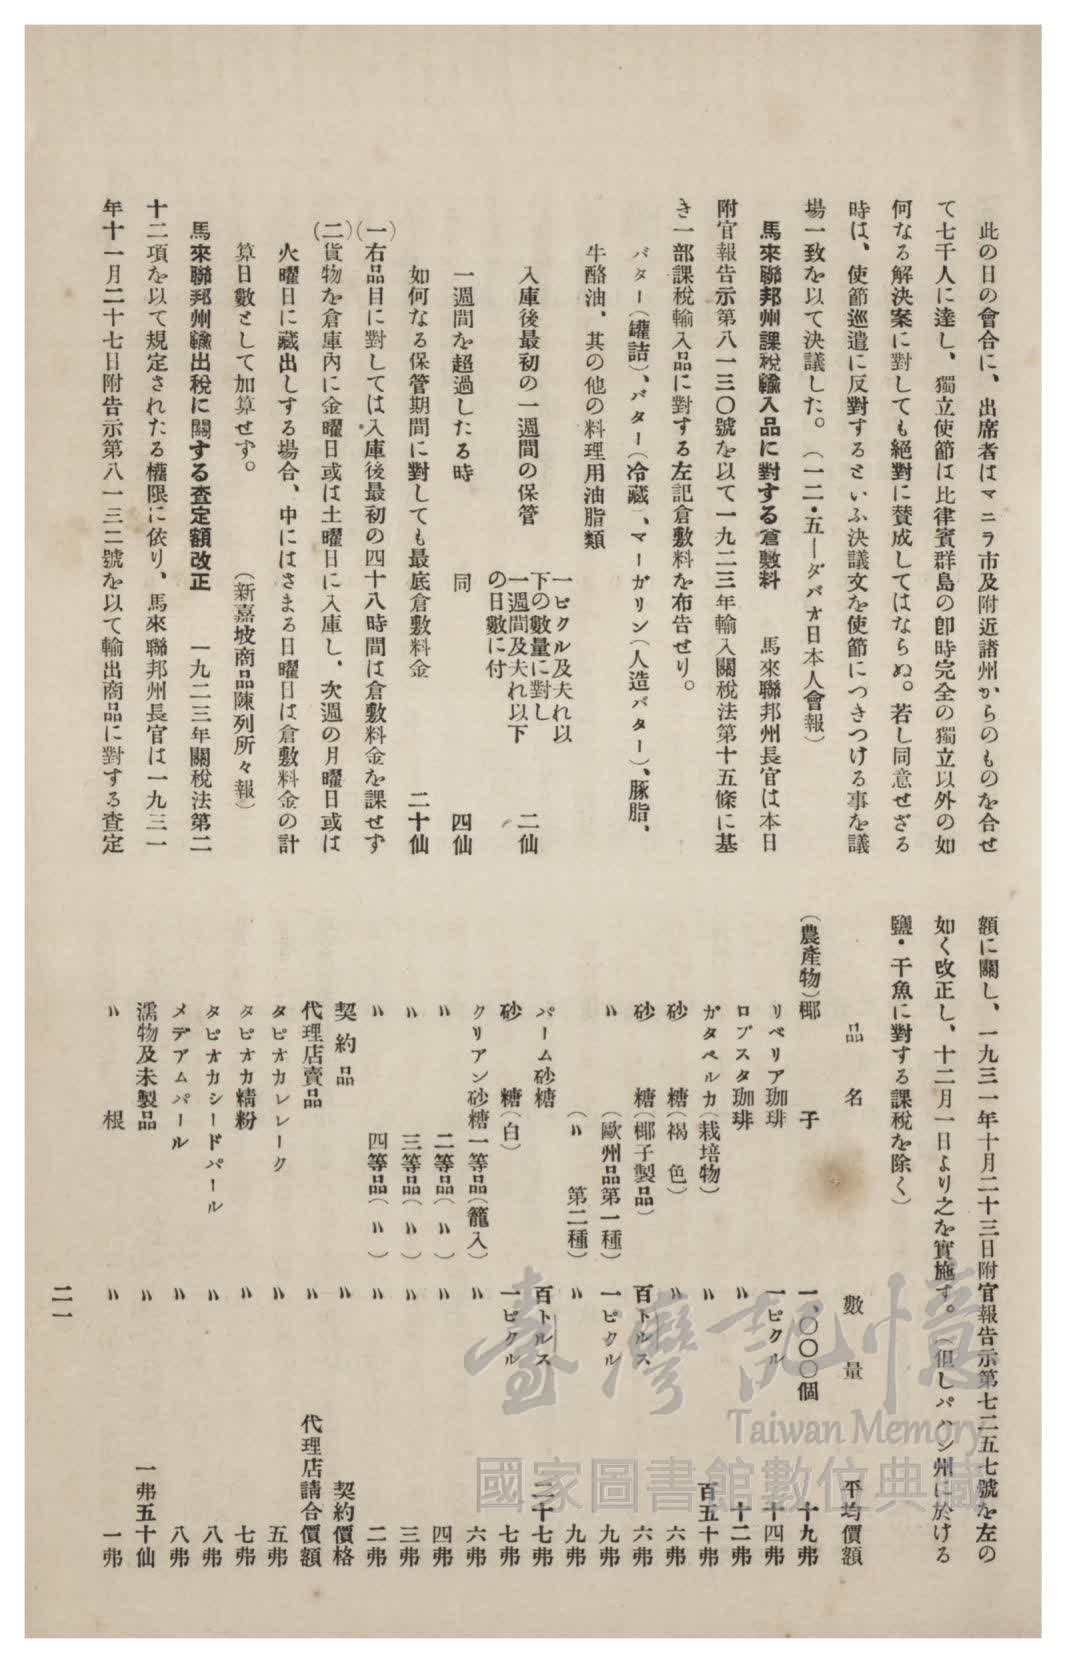 此の日の會合に、出席者はマニラ市及附近諸州からのものを合せ
て七千人に達し、獨立使節は比律賓群島の卽時完全の獨立以外の如
何なる解決案に對しても絕對に賛成してはならぬ。若し同意せざる
時は、使節巡遣に反對するといふ決議文を使節につきつける事を議
場一致を以て決議した。（一二・五―ダバオ日本人會報）
馬來聯邦州課稅輸入品に對する倉敷料　馬來聯邦州長官は本日
附官報告示第八一三〇號を以て一九二三年輸入關稅法第十五條に基
き一部課稅輸入品に對する左記倉敷料を布告せり。
バター（罐詰）、バター（冷藏）、マーガリン（人造バター）、豚脂、
牛酪油、其の他の料理用油脂類
入庫後最初の一週間の保管　一ピクル及夫れ以下の數量に對し一週間及夫れ以下の日數に付　二仙
一週間を超過したる時　同　四仙
如何なる保管期間に對しても最底倉敷料金　二十仙
（一）右品目に對しては入庫後最初の四十八時間は倉敷料金を課せず
（二）貨物を倉庫內に金曜日或は土曜日に入庫し、次週の月曜日或は
火曜日に藏出しする場合、中にはさまる日曜日は倉敷料金の計
算日數として加算せず。　（新嘉坡商品陳列所々報）
馬來聯邦州輸出稅に關する査定額改正　一九二三年關稅法第二
十二項を以て規定されたる權限に依り、馬來聯邦州長官は一九三一
年十一月二十七日附告示第八一三二號を以て輸出商品に對する査定
額に關し、一九三一年十月二十三日附官報告示第七二五七號を左の
如く改正し、十二月一日より之を實施す。（但しパハン州に於ける
鹽・干魚に對する課稅を除く）
品名　數量　平均價額
（農產物）椰子　一、〇〇〇個　十九弗
リベリア珈琲　一ピクル　十四弗
ロブスタ珈琲　〃　十二弗
ガタペルカ（栽培物）　〃　百五十弗
砂糖（褐色）　〃　六弗
砂糖（椰子製品）　百トルス　六弗
〃（歐州品第一種）　一ピクル　九弗
（〃　第二種）　〃　九弗
パーム砂糖　百トルス　二十七弗
砂糖（白）　一ピクル　七弗
クリアン砂糖一等品（籠入）　〃　六弗
〃　二等品（〃）　〃　四弗
〃　三等品（〃）　〃　三弗
〃　四等品（〃）　〃　二弗
契約品　〃　契約價格
代理店賣品　〃　代理店請合價額
タピオカレレーク　〃　五弗
タピオカ精粉　〃　七弗
タピオカシードパール　〃　八弗
メデアムパール　〃　八弗
濡物及未製品　〃　一弗五十仙
〃　根　〃　一弗
二一
臺灣記憶
Taiwan Memory
國家圖書館數位典藏